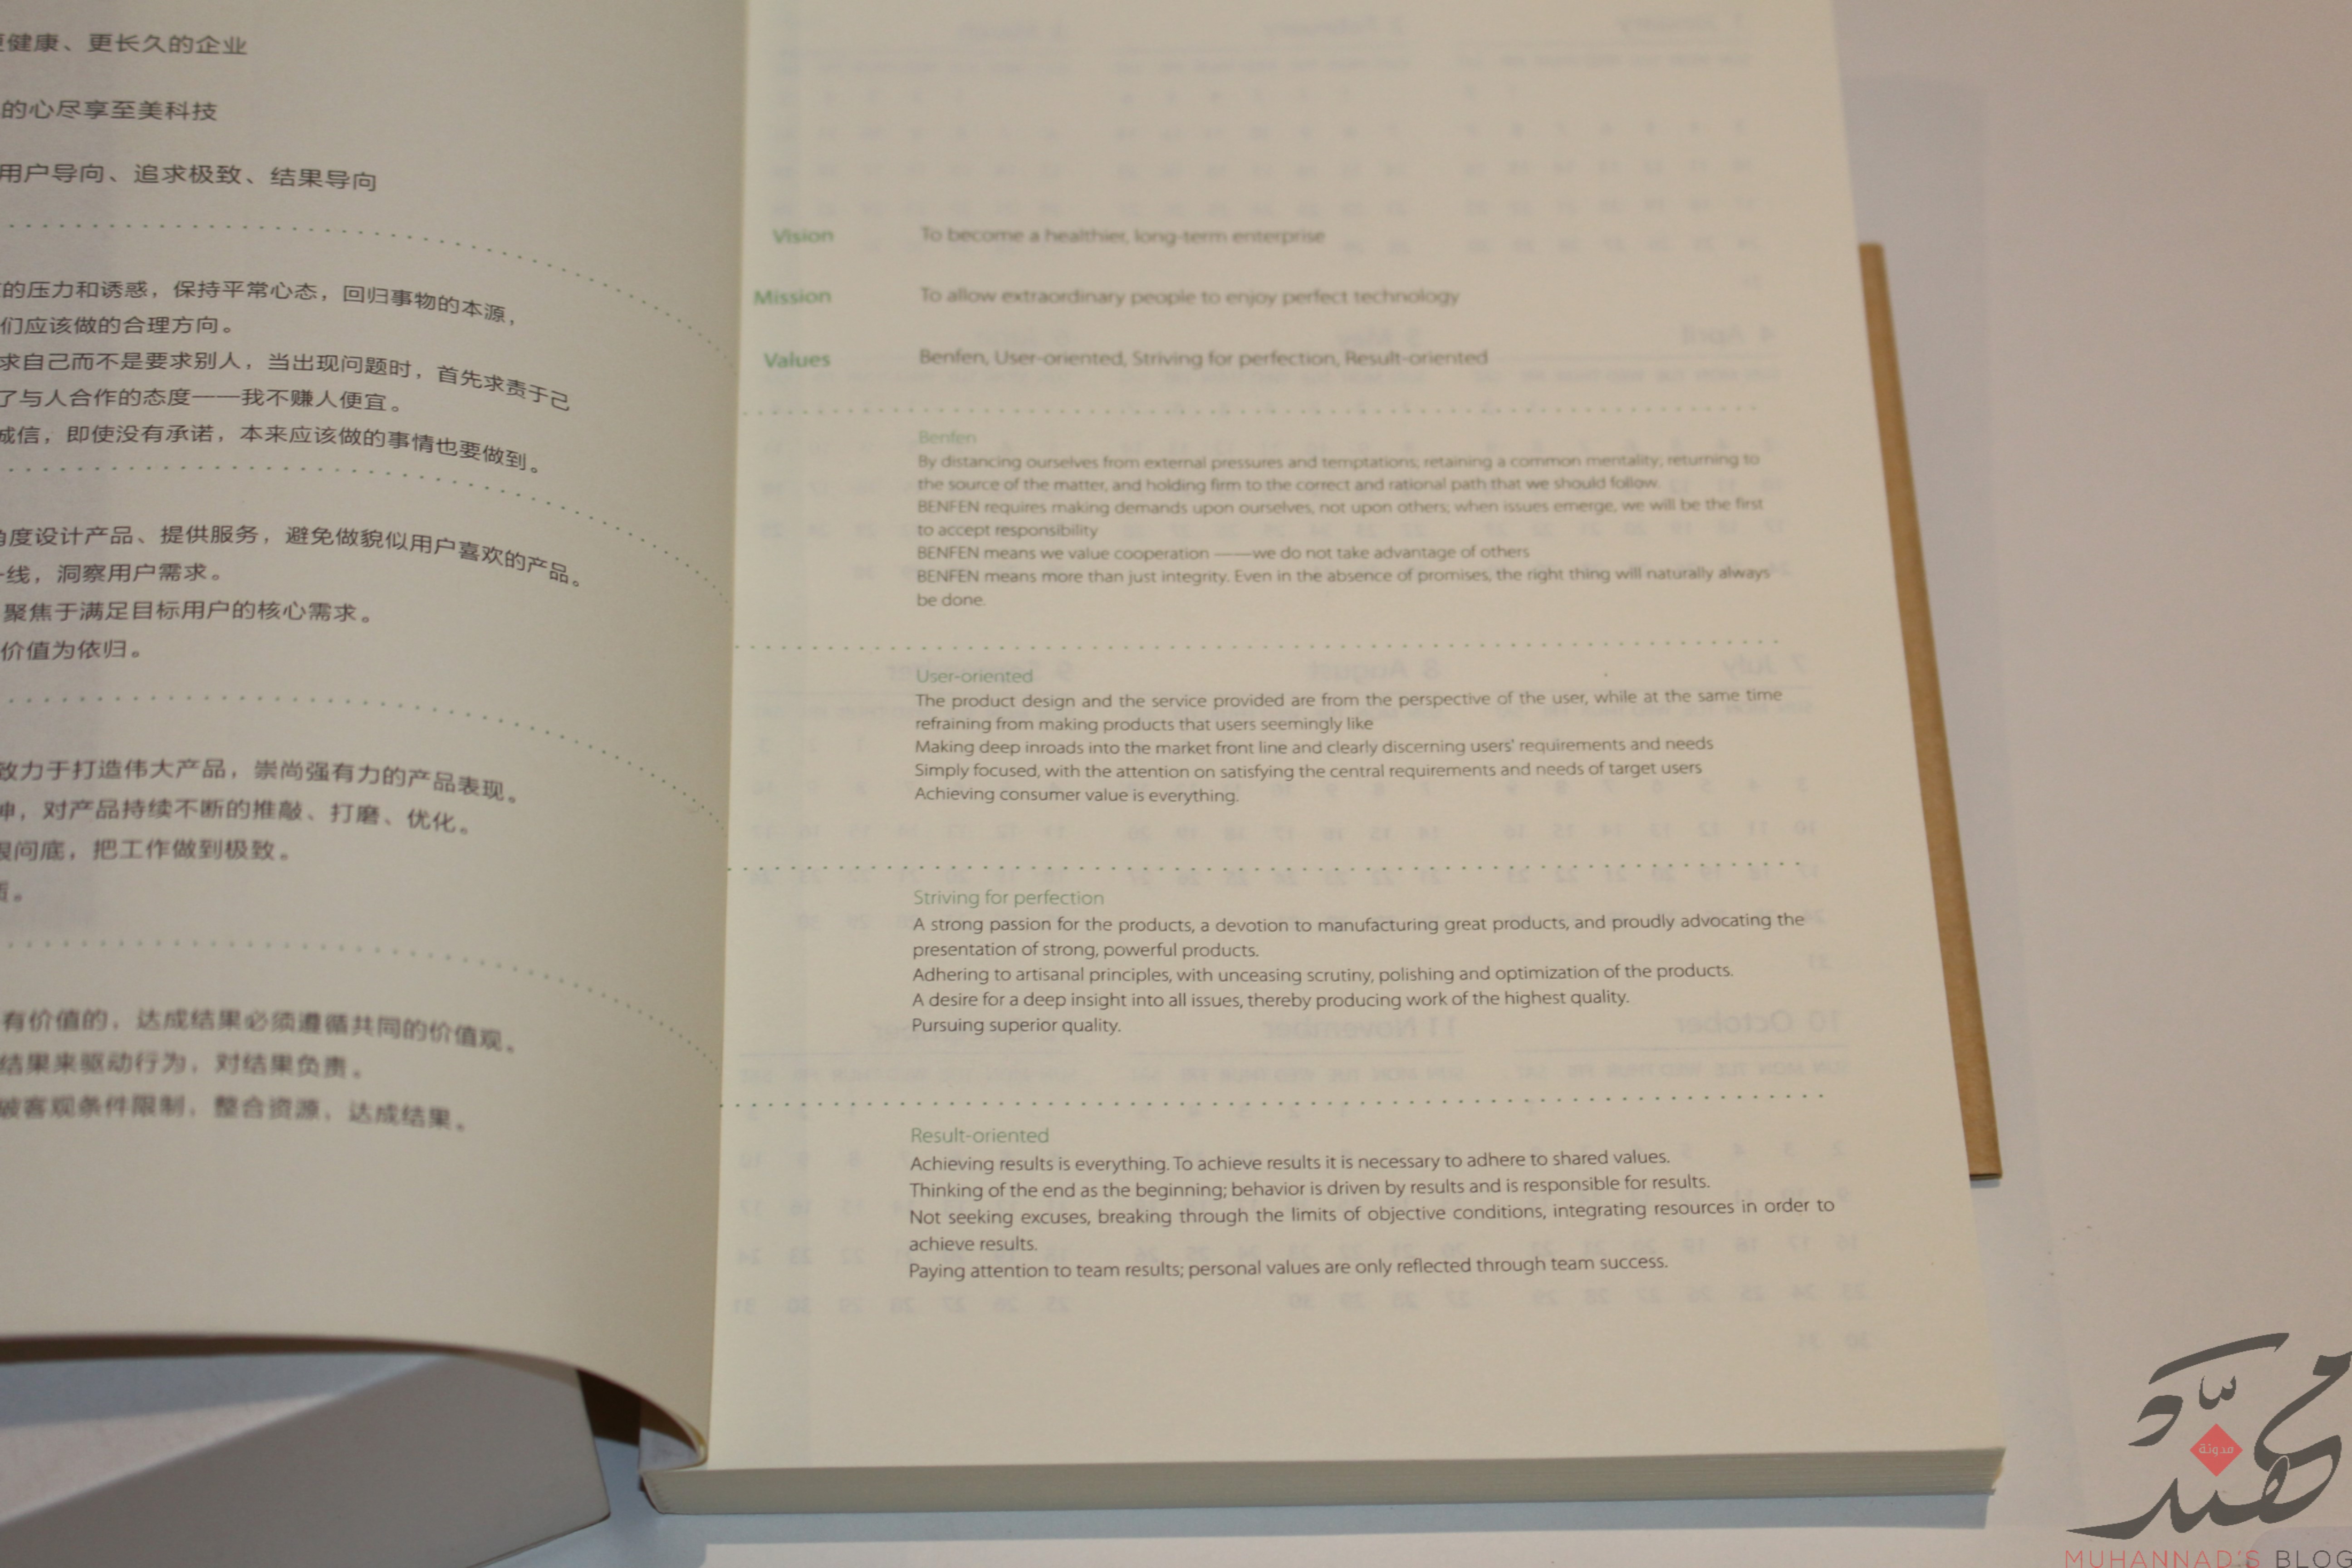 健康、更长久的企业
的心尽享至美科技
用户导向、追求极致、结果导向
的压力和诱惑，保持平常心态，回归事物的本源，
们应该做的合理方向。
求自己而不是要求别人，当出现问题时，首先求责于己
了与人合作的态度——我不赚人便宜。
诚信，即使没有承诺，本来应该做的事情也要做到。
角度设计产品、提供服务，避免做貌似用户喜欢的产品。
一线，洞察用户需求。
聚焦于满足目标用户的核心需求。
价值为依归。
致力于打造伟大产品，崇尚强有力的产品表现。
神，对产品持续不断的推敲、打磨、优化。
根问底，把工作做到极致。
有价值的，达成结果必须遵循共同的价值观。
结果来驱动行为，对结果负责。
破客观条件限制，整合资源，达成结果。
Vision To become a healthier, long-term enterprise
Mission To allow extraordinary people to enjoy perfect technology
Values Benfen, User-oriented, Striving for perfection, Result-oriented
Benfen
By distancing ourselves from external pressures and temptations; retaining a common mentality; returning to
the source of the matter, and holding firm to the correct and rational path that we should follow.
BENFEN requires making demands upon ourselves, not upon others; when issues emerge, we will be the first
to accept responsibility
BENFEN means we value cooperation ——we do not take advantage of others
BENFEN means more than just integrity. Even in the absence of promises, the right thing will naturally always
be done.
User-oriented
The product design and the service provided are from the perspective of the user, while at the same time
refraining from making products that users seemingly like
Making deep inroads into the market front line and clearly discerning users' requirements and needs
Simply focused, with the attention on satisfying the central requirements and needs of target users
Achieving consumer value is everything.
Striving for perfection
A strong passion for the products, a devotion to manufacturing great products, and proudly advocating the
presentation of strong, powerful products.
Adhering to artisanal principles, with unceasing scrutiny, polishing and optimization of the products.
A desire for a deep insight into all issues, thereby producing work of the highest quality.
Pursuing superior quality.
Result-oriented
Achieving results is everything. To achieve results it is necessary to adhere to shared values.
Thinking of the end as the beginning; behavior is driven by results and is responsible for results.
Not seeking excuses, breaking through the limits of objective conditions, integrating resources in order to
achieve results.
Paying attention to team results; personal values are only reflected through team success.
مهند
مدونة
MUHANNAD'S BLOG